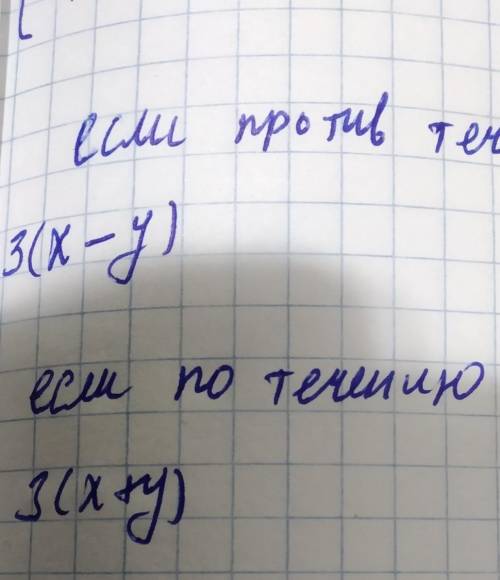 если против теч
3(x-y)
если по течению
3(x+y)